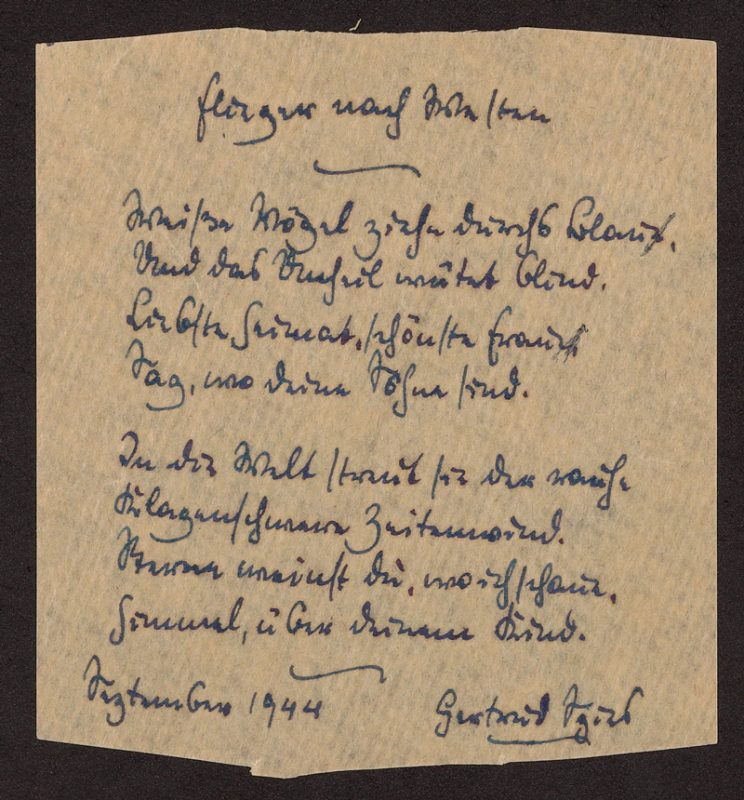 Flieger nach Westen
Weiße Vögel ziehn durchs Blau,
Und das Unheil wütet blind.
Liebste Heimat, schönste Frau
Sag, wo deine Söhne sind.
In die Welt streut sie der rauhe
Klagenschwere Zeitenwind.
Sterne weinst du, wo ich schaue,
Himmel, über deinem Kind.
September 1944
Gertrud Spies